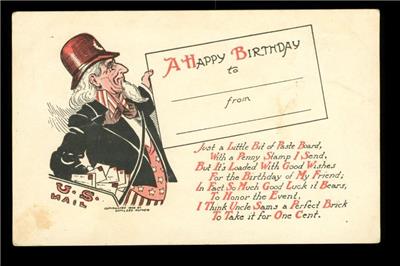 A HAPPY BIRTHDAY
to
from
Just a Little Bit of Paste Board,
With a Penny Stamp I Send,
But It's Loaded With Good Wishes
For the Birthday of My Friend;
In Fact So Much Good Luck it Bears,
To Honor the Event,
I Think Uncle Sam's a Perfect Brick
To Take it for One Cent.
U.S.
MAIL